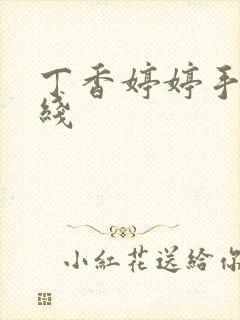 丁香婷婷手
綫
小紅花送給你